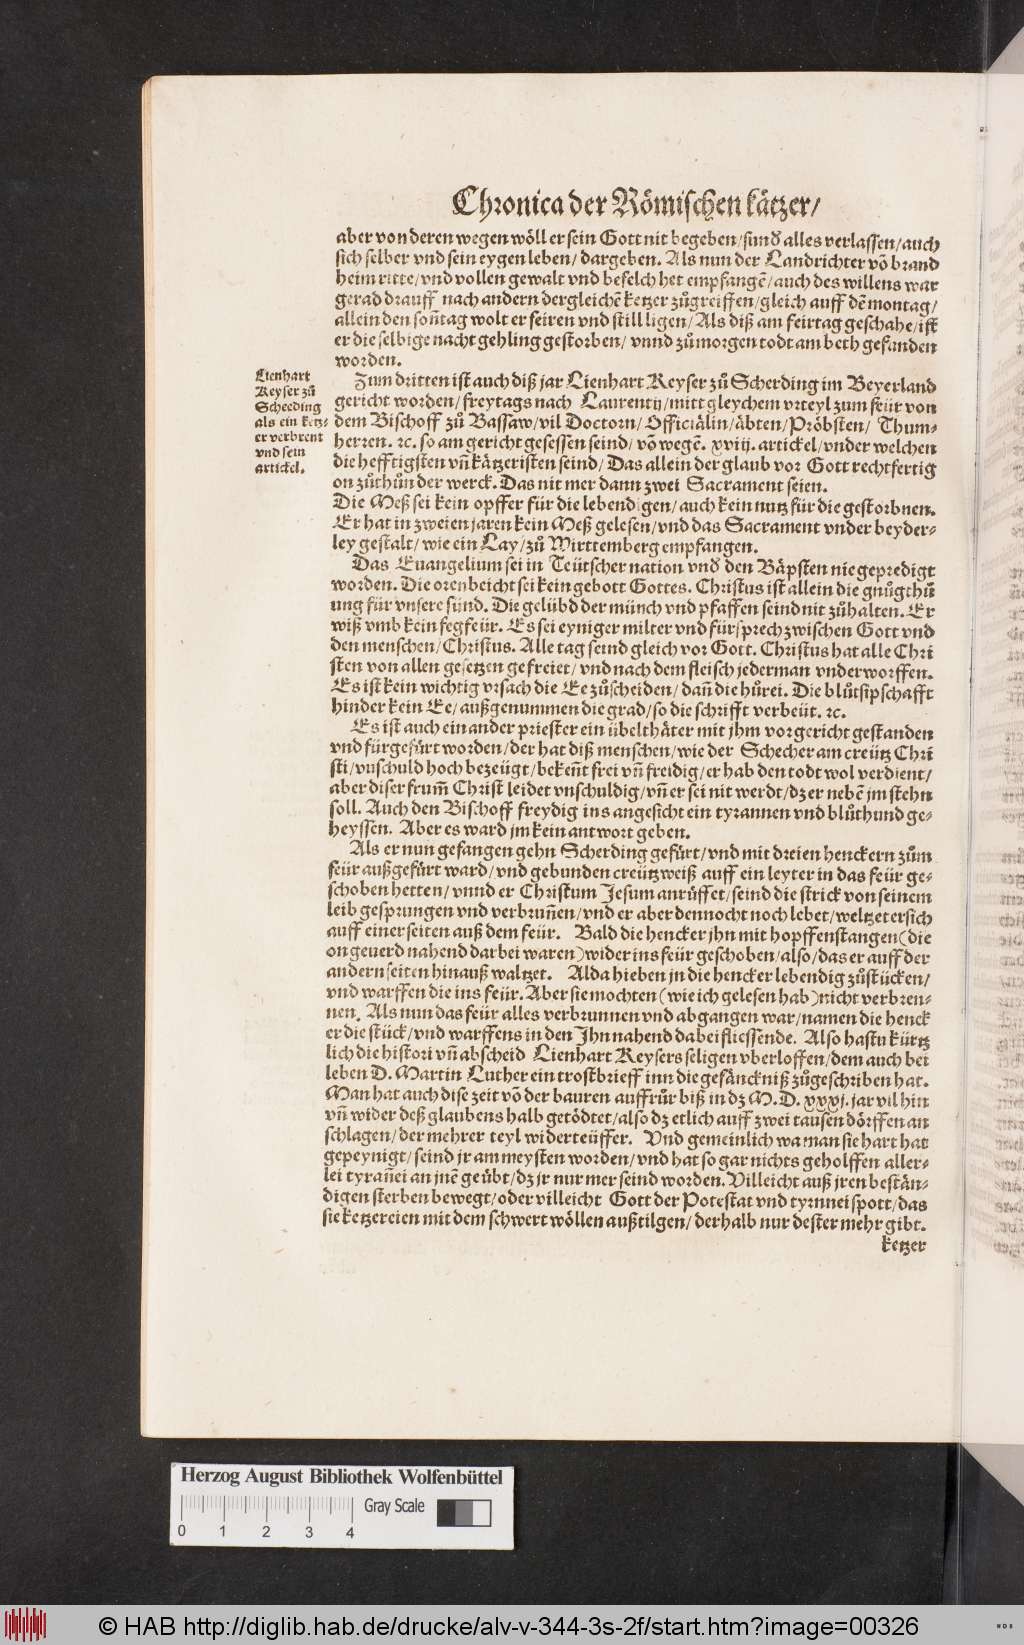 Chronica der Römischen kätzer/
aber von deren wegen wöll er sein Gott nit begeben/sund alles verlassen/auch
sich selber vnd sein eygen leben/dargeben. Als nun der Landrichter võ brand
heim ritte/vnd vollen gewalt vnd befelch het empfangẽ/auch des willens war
gerad drauff nach andern dergleichẽ ketzer zůgreiffen/gleich auff dẽ montag/
allein den soñtag wolt er feiren vnd still ligen/Als diß am feirtag geschahe/ist
er die selbige nacht gehling gestorben/vnnd zů morgen todt am beth gefunden
worden.
Lienhart
Keyser zů
Scherding
als ein ketz-
er verbrent
vnd sein
artickel.
Zum dritten ist auch diß jar Lienhart Keyser zů Scherding im Beyerland
gericht worden/freytags nach Laurentij/mitt gleychem vrteyl zum feür von
dem Bischoff zů Bassaw/vil Doctorn/Officiälin/äbten/Pröbsten/Thum-
herren. ꝛc. so am gericht gesessen seind/võ wegẽ. xviij. artickel/vnder welchen
die hefftigsten vñ kätzeristen seind/Das allein der glaub vor Gott rechtfertig
on zůthůn der werck. Das nit mer dann zwei Sacrament seien.
Die Meß sei kein opffer für die lebendigen/auch kein nutz für die gestorbnen.
Er hat in zweien jaren kein Meß gelesen/vnd das Sacrament vnder beyder-
ley gestalt/wie ein Lay/zů Wirttemberg empfangen.
Das Euangelium sei in Teütscher nation vnd den Bäpsten nie gepredigt
worden. Die orenbeicht sei kein gebott Gottes. Christus ist allein die gnůgthů
ung für vnsere sünd. Die gelübd der münch vnd pfaffen seind nit zůhalten. Er
wiß vmb kein fegfeür. Es sei eyniger milter vnd fürsprech zwischen Gott vnd
den menschen/Christus. Alle tag seind gleich vor Gott. Christus hat alle Chri
sten von allen gesetzen gefreiet/vnd nach dem fleisch jederman vnderworffen.
Es ist kein wichtig vrsach die Ee zůscheiden/dañ die hůrei. Die blůtsipschafft
hinder kein Ee/außgenummen die grad/so die schrifft verbeüt. ꝛc.
Es ist auch ein ander priester ein übelthäter mit jhm vor gericht gestanden
vnd fürgefürt worden/der hat diß menschen/wie der Schecher am creütz Chri
sti/vnschuld hoch bezeügt/bekeñt frei vñ freidig/er hab den todt wol verdient/
aber diser frum̃ Christ leidet vnschuldig/vñ er sei nit werdt/dz er nebẽ jm stehn
soll. Auch den Bischoff freydig ins angesicht ein tyrannen vnd blůthund ge-
heyssen. Aber es ward jm kein antwort geben.
Als er nun gefangen gehn Scherding gefürt/vnd mit dreien henckern zům
feür außgefürt ward/vnd gebunden creützweiß auff ein leyter in das feür ge-
schoben hetten/vnnd er Christum Jesum anrůffet/seind die strick von seinem
leib gesprungen vnd verbruñen/vnd er aber dennocht noch lebet/weltzet er sich
auff einer seiten auß dem feür. Bald die hencker jhn mit hopffenstangen (die
on geuerd nahend darbei waren) wider ins feür geschoben/also/das er auff der
andern seiten hinauß waltzet. Alda hieben jn die hencker lebendig zů stücken/
vnd warffen die ins feür. Aber sie mochten (wie ich gelesen hab) nicht verbren-
nen. Als nun das feür alles verbrunnen vnd abgangen war/namen die henck
er die stück/vnd warffens in den Jhn nahend dabei fliessende. Also hastu kürtz
lich die histori vñ abscheid Lienhart Keysers seligen vberloffen/dem auch bei
leben D. Martin Luther ein trostbrieff inn die gefänckniß zůgeschriben hat.
Man hat auch dise zeit võ der bauren auffrůr biß in dz M. D. xxxj. jar vil hin
vñ wider deß glaubens halb getödtet/also dz etlich auff zwei tausen dörffen an
schlagen/der mehrer teyl widerteüffer. Vnd gemeinlich wa man sie hart hat
gepeynigt/seind jr am meysten worden/vnd hat so gar nichts geholffen aller-
lei tyrañei an jnẽ geübt/dz jr nur mer seind worden. Villeicht auß jren bestän-
digen sterben bewegt/oder villeicht Gott der Potestat vnd tyrnnei spott/das
sie ketzereien mit dem schwert wöllen außtilgen/derhalb nur dester mehr gibt.
ketzer
Herzog August Bibliothek Wolfenbüttel
Gray Scale
0 1 2 3 4
© HAB http://diglib.hab.de/drucke/alv-v-344-3s-2f/start.htm?image=00326